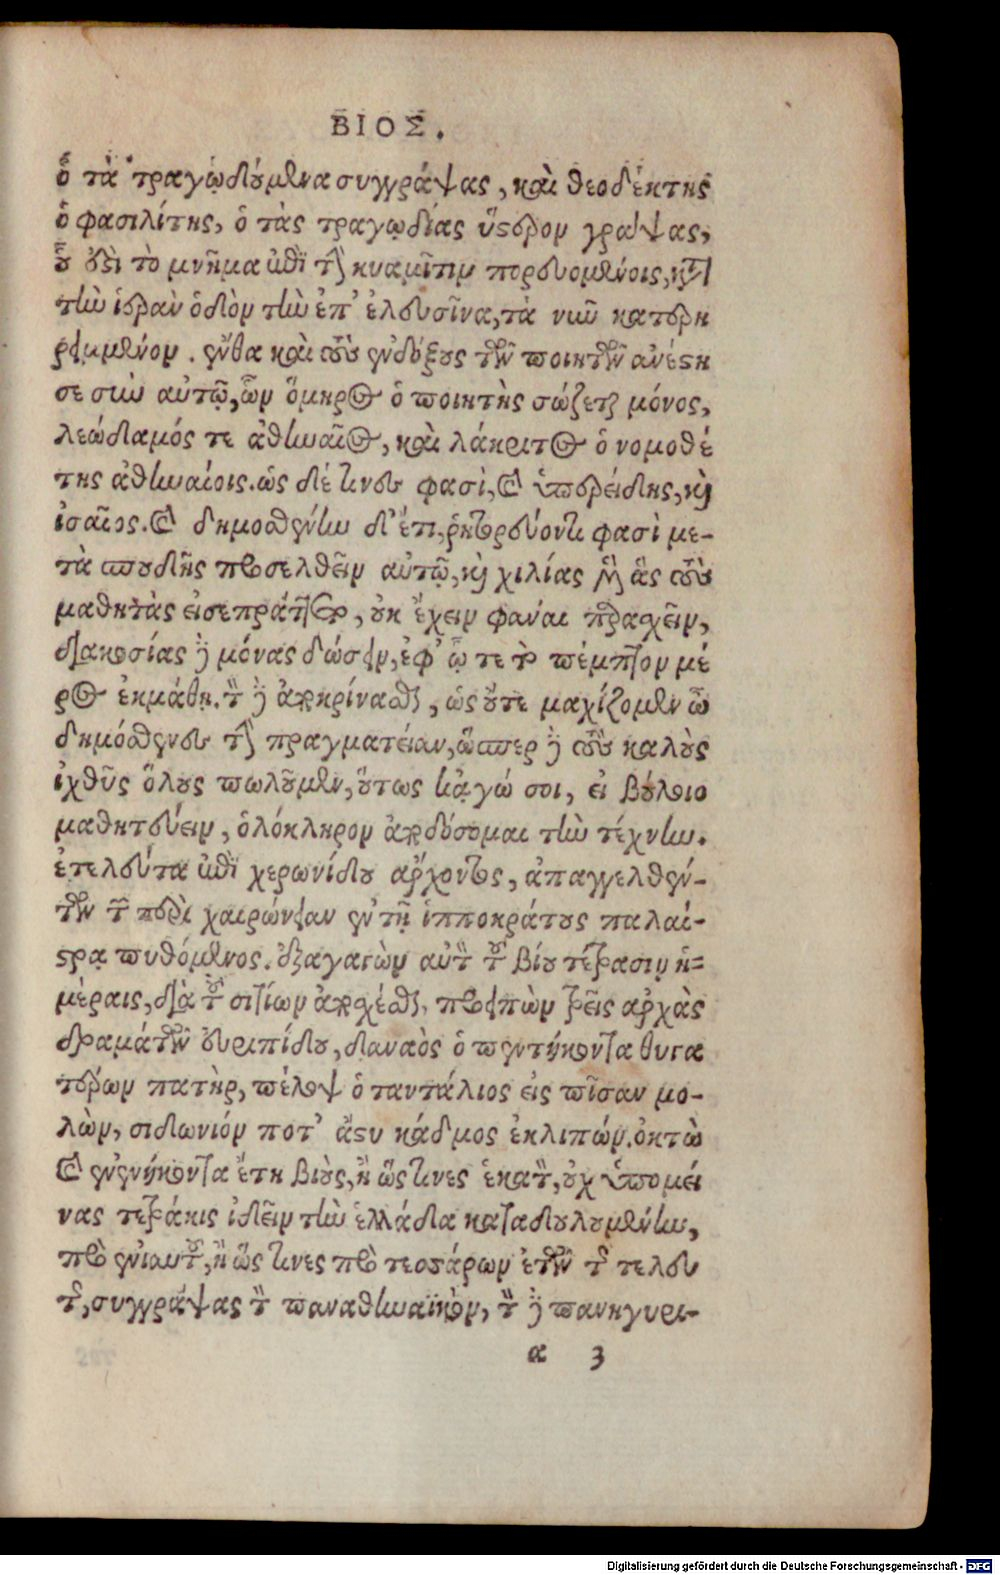 ΒΙΟΣ.
ὁ τὰ τραγῳδούμενα συγγράψας, καὶ θεοδέκτης
ὁ φασιλίτης, ὁ τὰς τραγῳδίας ὕστερον γράψας,
οὗ ἐστὶ τὸ μνῆμα ἐπὶ τὴν κυαμῖτιν πορευομένοις, κατὰ
τὴν ἱερὰν ὁδὸν τὴν ἐπ' ἐλευσῖνα, τὰ νῦν κατερη
ρειμμένον. ἔνθα καὶ τοὺς ἐνδόξους τῶν ποιητῶν ἀνέστη
σε σὺν αὐτῷ, ὧν ὅμηρος ὁ ποιητὴς σώζεται μόνος,
λεώδαμός τε ἀθηναῖος, καὶ λάκριτος ὁ νομοθέ
της ἀθηναίοις. ὡς δέ τινες φασὶ, καὶ ὑπερείδης, καὶ
ἰσαῖος. καὶ δημοσθένην δ' ἔτι, ῥητορεύοντι φασὶ με-
τὰ σπουδῆς προσελθεῖν αὐτῷ, καὶ χιλίας μὲν ἃς τοὺς
μαθητὰς εἰσεπράττετο, οὐκ ἔχειν φάναι παρασχεῖν,
διακοσίας δὲ μόνας δώσειν, ἐφ' ᾧ τε τὸ πέμπτον μέ
ρος ἐκμάθῃ. τὸν δὲ ἀποκρίνασθαι, ὡς οὔτε μαχίζομεν ὦ
δημόσθενες τὴν πραγματείαν, ὥσπερ δὲ τοὺς καλοὺς
ἰχθῦς ὅλους πωλοῦμεν, οὕτως κᾀγώ σοι, εἰ βούλοιο
μαθητεύειν, ὁλόκληρον ἀποδώσομαι τὴν τέχνην.
ἐτελεύτα ἐπὶ χερωνίδου ἄρχοντος, ἀπαγγελθέν-
των τῶν περὶ χαιρώνειαν ἐν τῇ ἱπποκράτους παλαί-
στρᾳ πυθόμενος. ἐξαγαγὼν αὑτὸν τοῦ βίου τέτρασιν ἡ-
μέραις, διὰ τοῦ σιτίων ἀποσχέσθαι, προειπὼν τρεῖς ἀρχὰς
δραμάτων εὐριπίδου, δαναὸς ὁ πεντήκοντα θυγα
τέρων πατὴρ, πέλοψ ὁ ταντάλιος εἰς πῖσαν μο-
λὼν, σιδώνιόν ποτ' ἄστυ κάδμος ἐκλιπών. ὀκτὼ
καὶ ἐνενήκοντα ἔτη βιοὺς, ἢ ὥς τινες ἑκατὸν, οὐχ ὑπομεί
νας τετράκις ἰδεῖν τὴν ἑλλάδα καταδουλουμένην,
πρὸ ἐνιαυτοῦ, ἢ ὥς τινες πρὸ τεσσάρων ἐτῶν τῆς τελευ
τῆς, συγγράψας τὸν παναθηναϊκὸν, τὸν δὲ πανηγυρι-
α 3
Digitalisierung gefördert durch die Deutsche Forschungsgemeinschaft - DFG